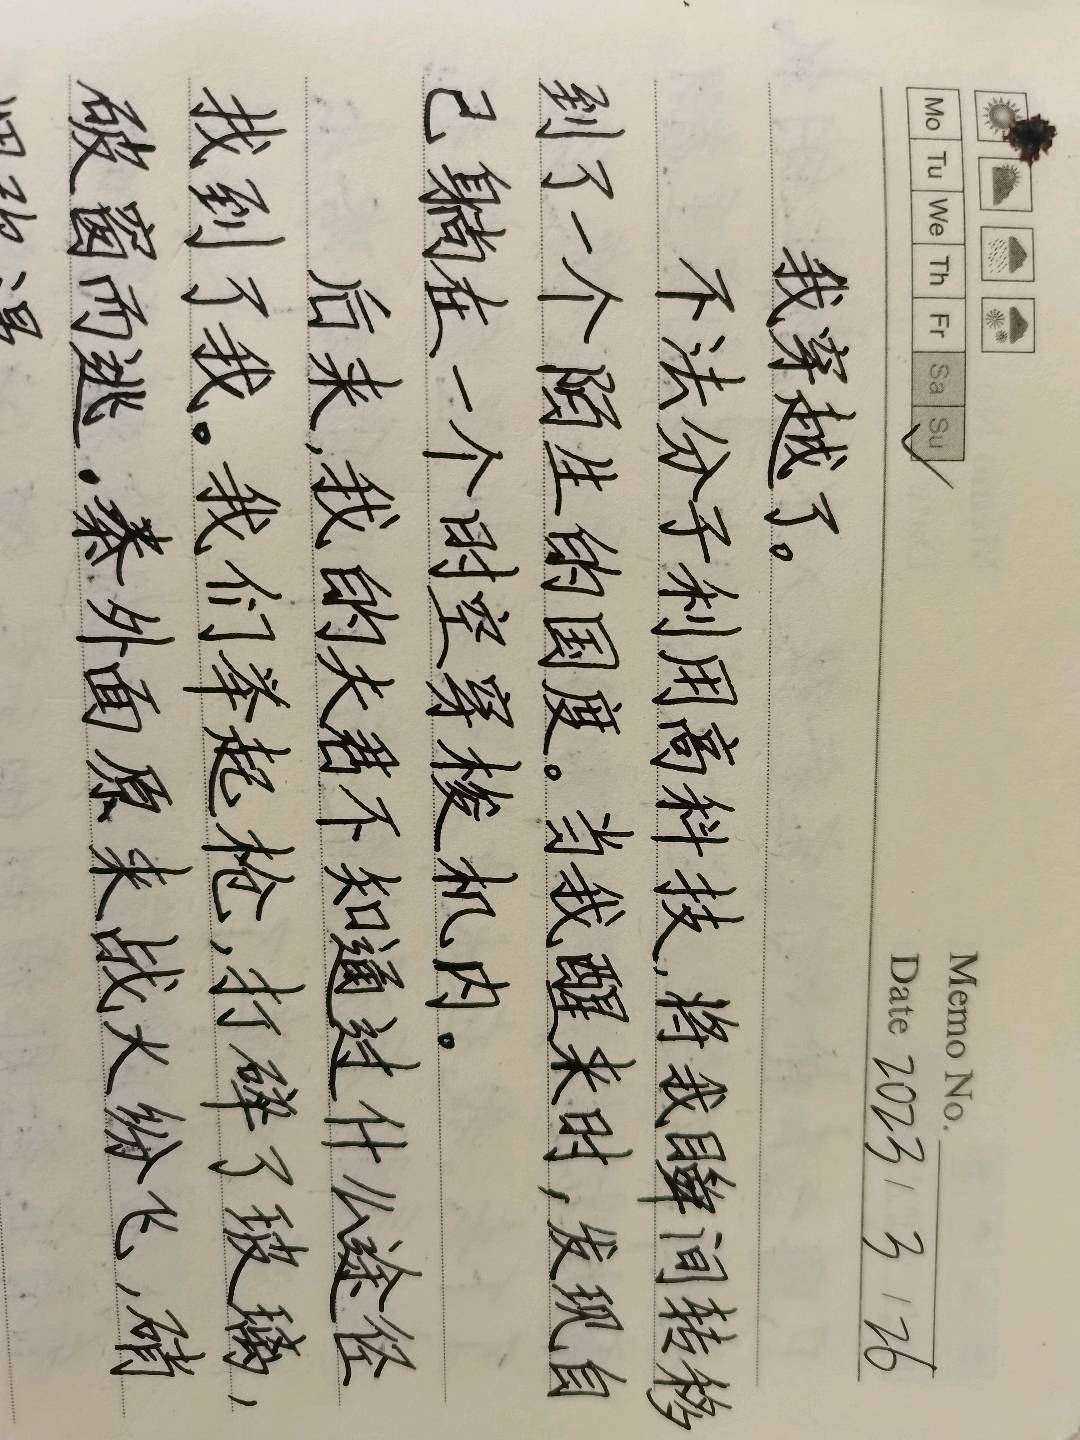 Memo No.
Mo Tu We Th Fr Sa Su
Date 2023 / 3 / 26
我穿越了。
不法分子利用高科技,将我瞬间转移
到了一个陌生的国度。当我醒来时,发现自
己躺在一个时空穿梭机内。
后来,我的夫君不知通过什么途径
找到了我。我们举起枪,打碎了玻璃,
破窗而逃。秦外面原来战火纷飞,硝